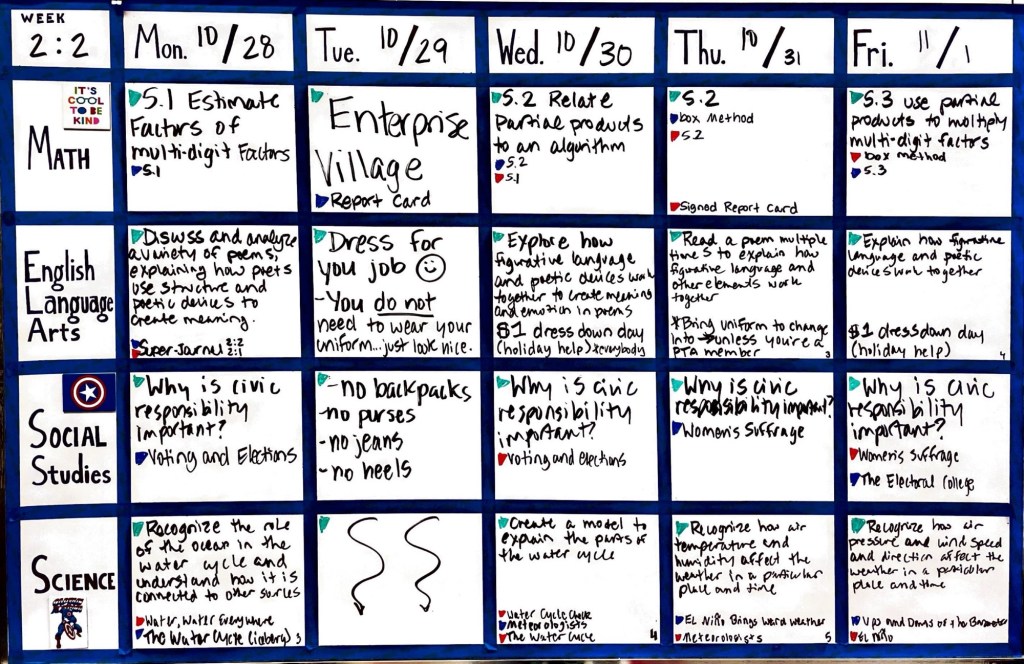 WEEK
2:2
Mon. 10/28
Tue. 10/29
Wed. 10/30
Thu. 10/31
Fri. 11/1
IT'S
COOL
TO BE
KIND
MATH
5.1 Estimate
Factors of
multi-digit Factors
5.1
Enterprise
Village
Report Card
5.2 Relate
Partial products
to an algorithm
5.2
5.1
5.2
box Method
5.2
Signed Report Card
5.3 use partial
products to multiply
multi-digit factors
box method
5.3
English
Language
Arts
Discuss and analyze
a variety of poems,
explaining how poets
use structure and
poetic devices to
create meaning.
Super-Journal 2:2
2:1
Dress for
you job
-You do not
need to wear your
uniform...just look nice.
Explore how
figurative language
and poetic devices work
together to create meaning
and emotion in poems
$1 dress down day
(holiday help) *everybody
Read a poem multiple
times to explain how
figurative language and
other elements work
together
*Bring uniform to change
into → unless you're a
PTA member
3
Explain how figurative
language and poetic
devices work together
$1 dress down day
(holiday help)
4
SOCIAL
Studies
Why is civic
responsibility
important?
Voting and Elections
-no backpacks
-no purses
-no jeans
-no heels
Why is civic
responsibility
important?
Voting and elections
Why is civic
responsibility important?
Women's Suffrage
Why is civic
responsibility
important?
Women's Suffrage
The Electoral College
SCIENCE
Recognize the role
of the ocean in the
water cycle and
understand how it is
connected to other
Water, Water Everywhere
The Water Cycle (iceberg) 3
Create a model to
explain the parts of
the water cycle
Water Cycle
Meteorologists
The Water Cycle
4
Recognize how air
temperature and
humidity affect the
weather in a particular
place and time
EL Niño Brings Weird weather
Meteorologists
5
Recognize how air
pressure and wind speed
and direction affect the
weather in a particular
place and time
Ups and Downs of the Barometer
EL Niño